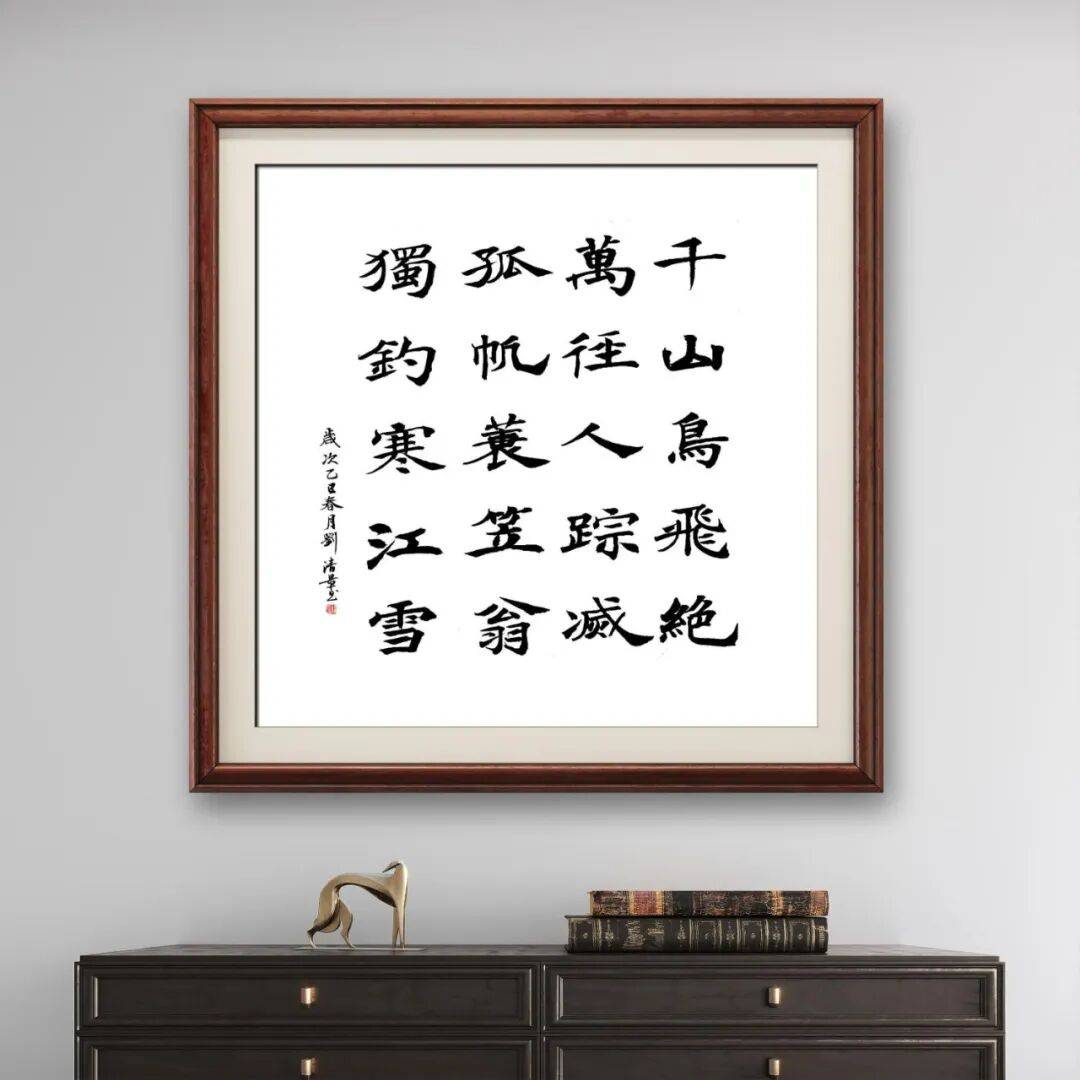 千山鳥飛絶
萬徑人踪滅
孤帆蓑笠翁
獨釣寒江雪
歲次乙巳春月劉清景书